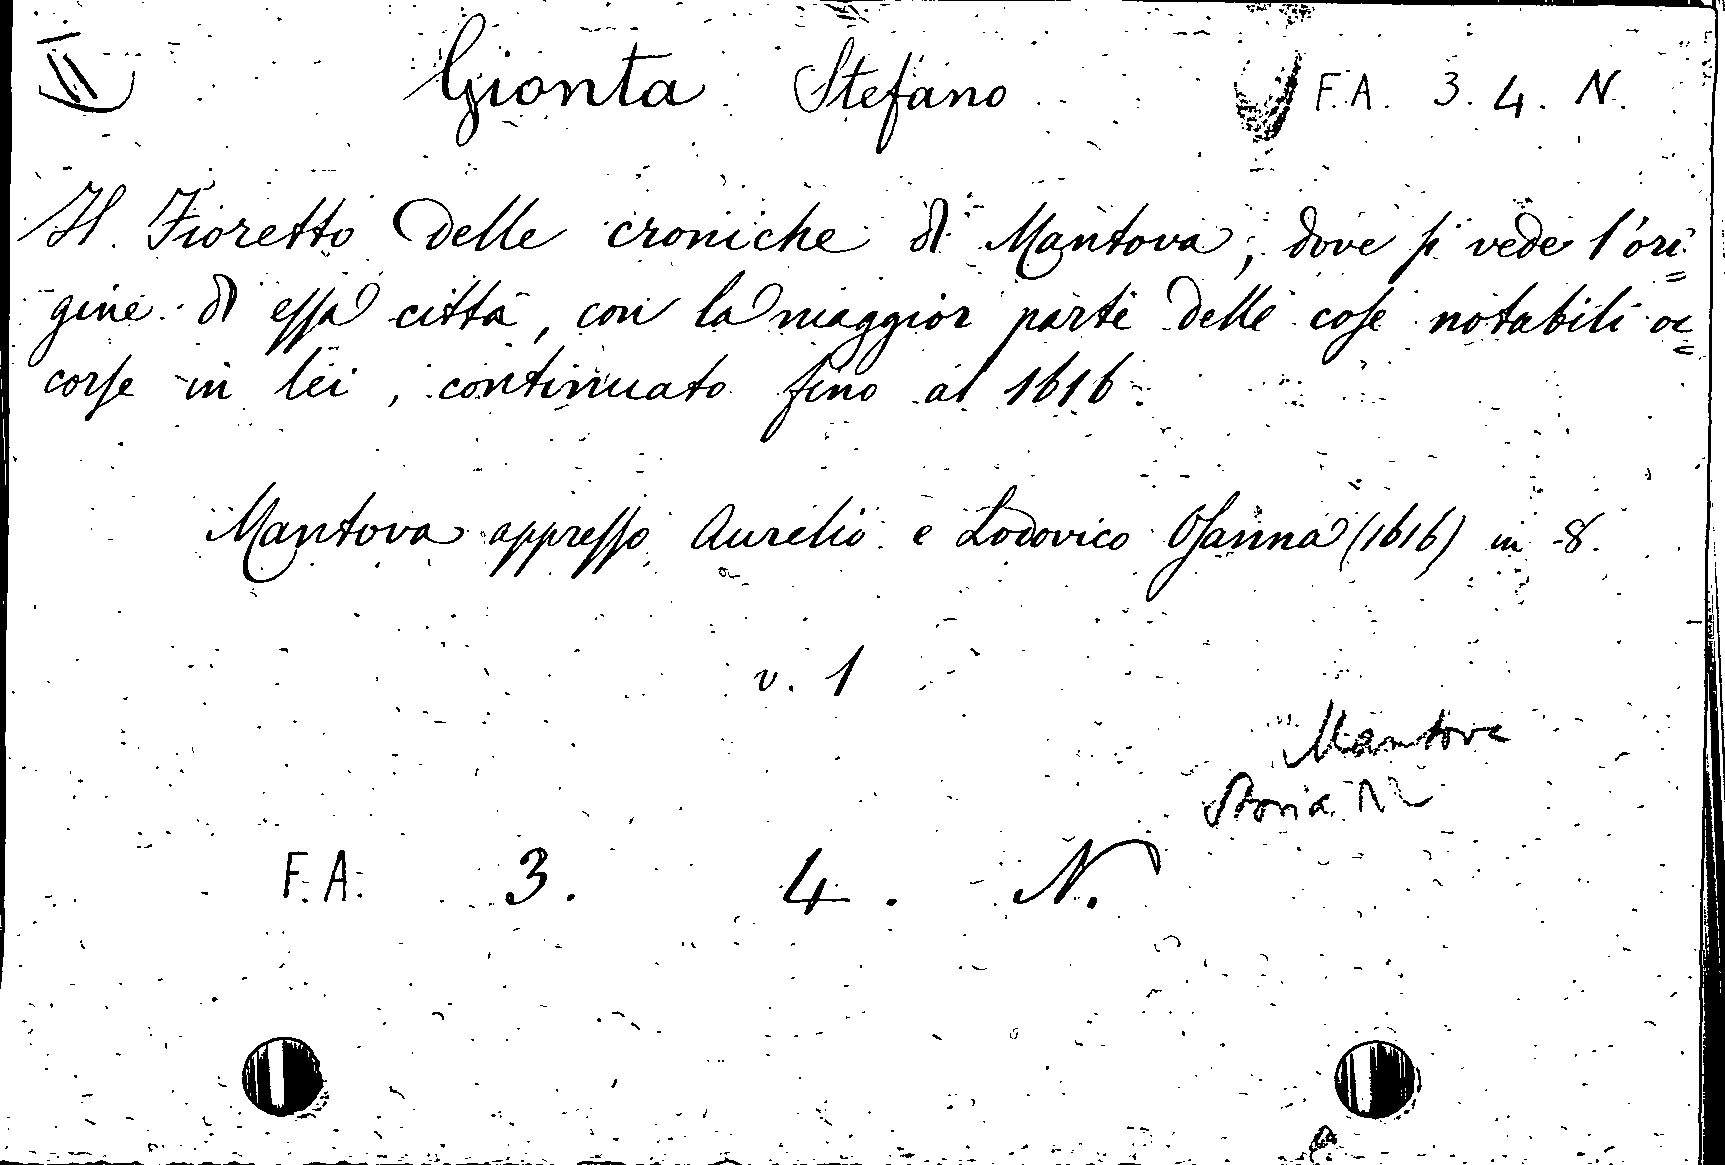 Gionta Stefano F.A. 3. 4. N.
Il Fioretto delle croniche di Mantova, dove si vede l'ori=
gine di essa città, con la maggior parte delle cose notabili oc=
corse in lei, continuato fino al 1616.
Mantova appresso Aurelio e Lodovico Osanna (1616) in 8.
v. 1
Mantova
Storia
F.A. 3. 4. N.